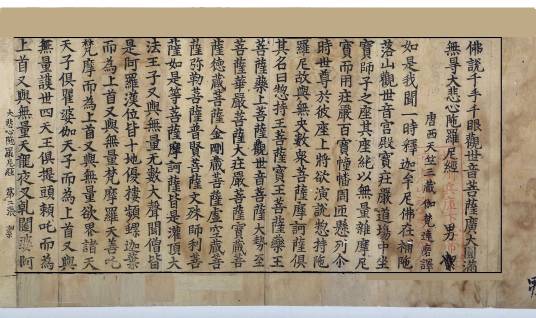 佛說千手千眼觀世音菩薩廣大圓滿
無导大悲心陁羅尼經 男
唐西天竺三藏伽梵達磨譯
如是我聞一時釋迦牟尼佛在補陁
落山觀世音宮殿寶莊嚴道場中坐
寶師子之座其座純以無量雜摩尼
寶而用莊嚴百寶幢幡周匝懸列尒
時世尊於彼座上將欲演說惣持陁
羅尼故與無央數衆菩薩摩訶薩俱
其名曰惣持王菩薩寶王菩薩藥王
菩薩藥上菩薩觀世音菩薩大勢至
菩薩華嚴菩薩大莊嚴菩薩寶藏菩
薩德藏菩薩金剛藏菩薩虛空藏菩
薩弥勒菩薩普賢菩薩文殊師利菩
薩如是等菩薩摩訶薩皆是灌頂大
法王子又與無量無數大聲聞僧皆
是阿羅漢位皆十地優樓頻螺迦葉
而為上首又與無量梵摩羅天善吒
梵摩而為上首又與無量欲界諸天
天子俱瞿婆伽天子而為上首又與
無量護世四天王俱提頭頼吒而為
上首又與無量天龍夜叉乹闥婆阿
大悲心陁羅尼經 第二張